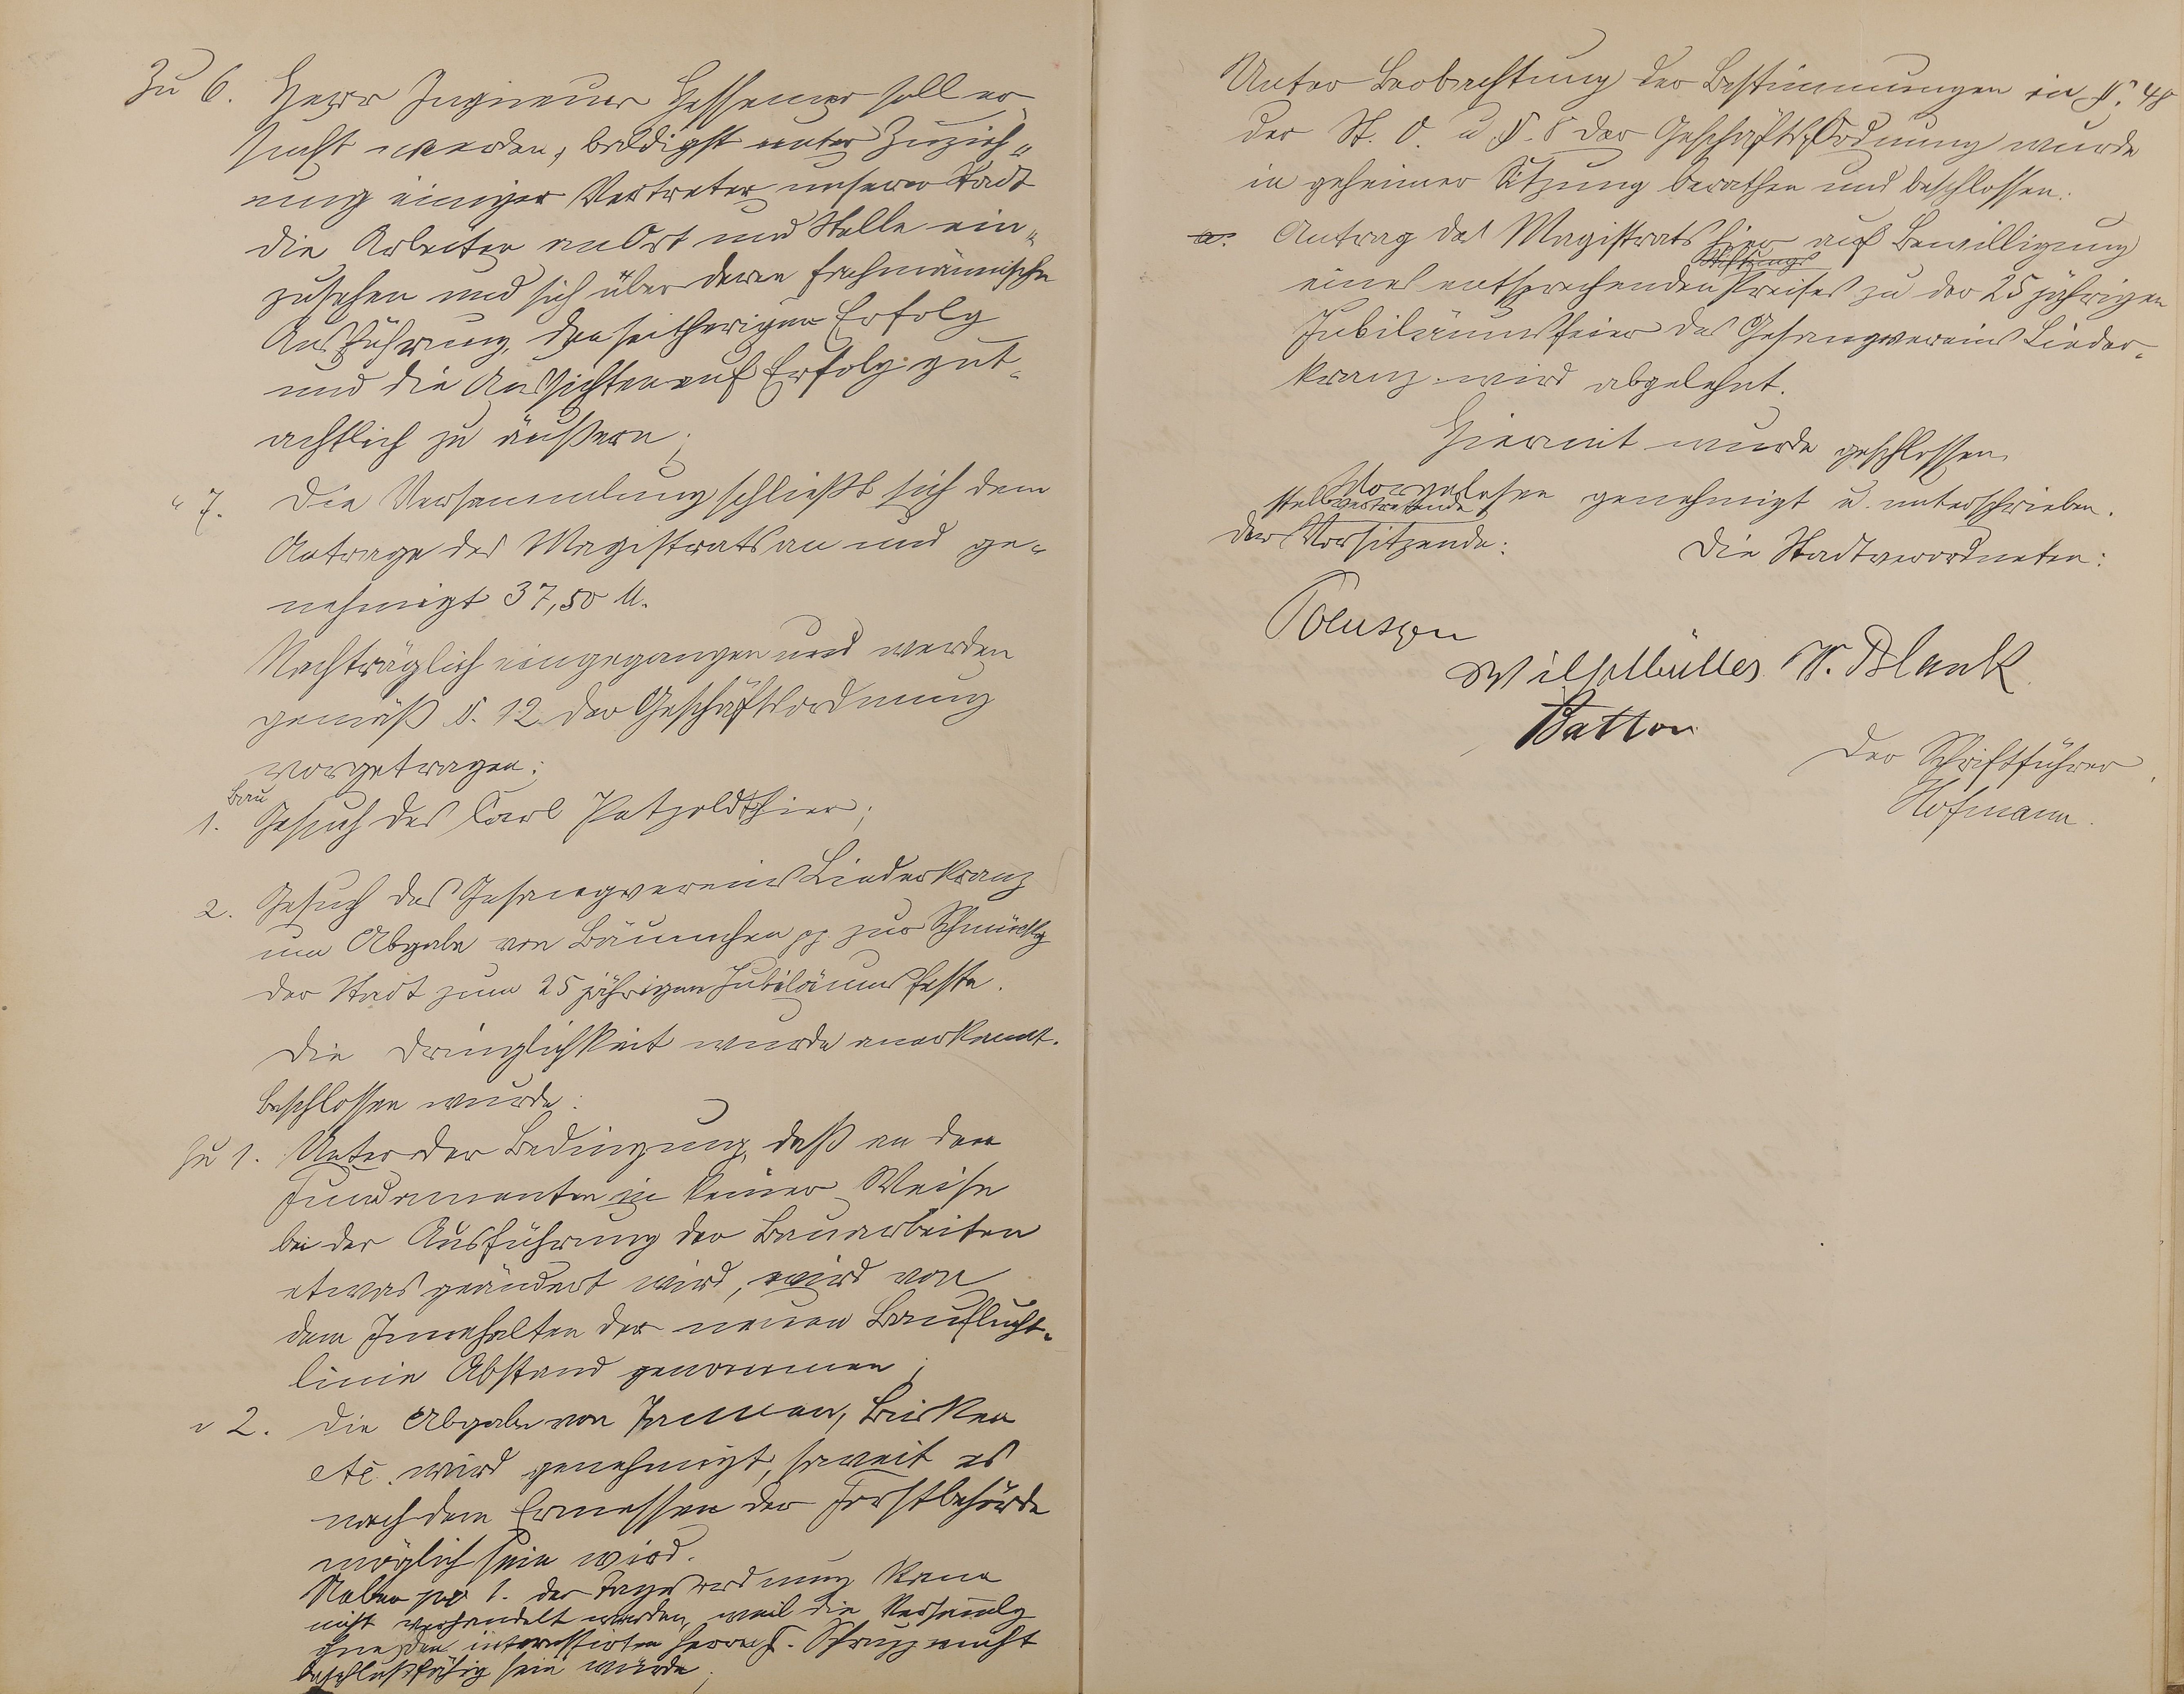 Zu 6. Herr Ingenieur Hessemer soll er-
sucht werden, baldigst unter Zuzieh-
ung einiger Vertreter unserer Stadt
die Arbeiten an Ort und Stelle ein-
zusehen und sich über deren fachmännische
Ausführung, den seitherigen Erfolg
und die Aussichten auf Erfolg gut-
achtlich zu äußern;
" 7. Die Versammlung schließt sich dem
Antrage des Magistrats an und ge-
nehmigt 37,50 M.
Nachträglich eingegangen und werden
gemäß §. 12 der Geschäftsordnung
vorgetragen:
1. Baugesuch des Carl Petzoldt hier;
2. Gesuch des Gesangvereins Liederkranz
um Abgabe von Bäumchen pp. zur Schmückg
der Stadt zum 25 jährigen Jubiläumsfeste.
Die Dringlichkeit wurde anerkannt.
Beschlossen wurde:
Zu 1. Unter der Bedingung, daß an den
Fundamenten in keiner Weise
bei der Ausführung der Bauarbeiten
etwas geändert wird, wird von
dem Innehalten der neuen Bauflucht-
linie Abstand genommen;
" 2. Die Abgabe von Tannen, Birken
etc. wird genehmigt, soweit es
nach dem Ermessen der Forstbehörde
möglich sein wird.
1. der Tagesordnung kann
nicht verhandelt werden, weil die Versammlg
ohne den interessirten Herrn nicht
beschlußfähig sein würde;
Unter Beobachtung der Bestimmungen in §. 48
der St. O. u. §. 8 der Geschäftsordnung wurde
in geheimer Sitzung berathen und beschlossen:
a. Antrag des Magistrats hier auf Bewilligung
eines entsprechenden Preises zu der 25 jährigen
Jubiläumsfeier des Gesangvereins Lieder-
kranz wird abgelehnt.
Hiermit wurde geschlossen.
Vorgelesen genehmigt u. unterschrieben.
stellvertretende
Der Vorsitzende: Die Stadtverordneten:
W. Blank
Batton
Der Schriftführer
Hofmann.